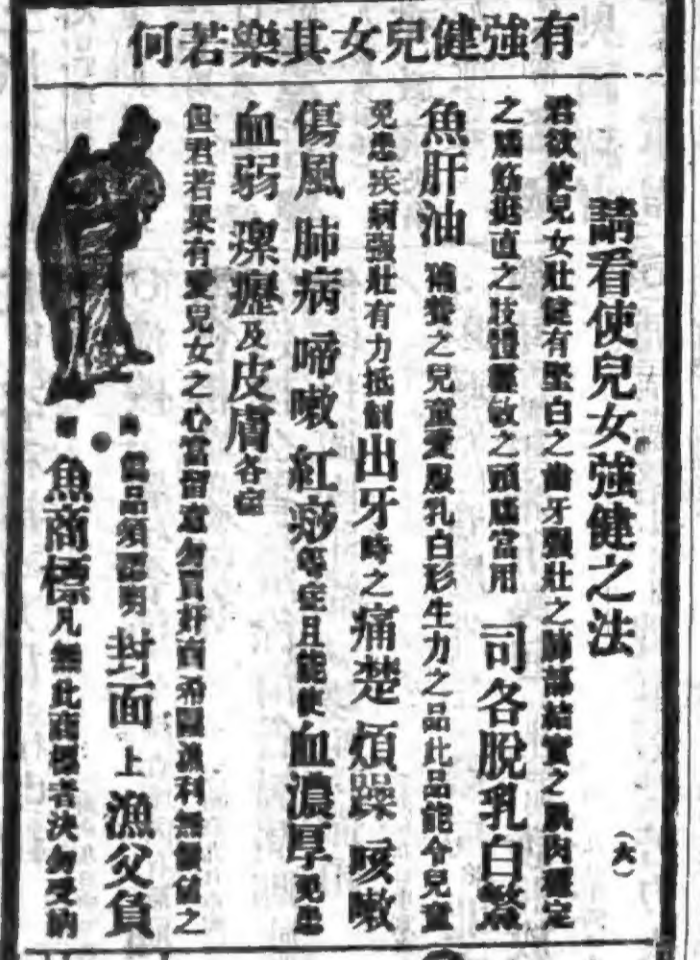 有強健兒女其樂若何
請看使兒女強健之法 (六)
君欲使兒女壯健有堅白之齒牙強壯之肺部結實之肌肉穩定
之腦筋挺直之肢體靈敏之頭腦當用 司各脫乳白鰵
魚肝油 補養之兒童愛服乳白形生力之品此品能令兒童
免患疾病強壯有力抵制出牙時之痛楚 煩躁 咳嗽
傷風 肺病 啼嗽 紅痧等症且能使血濃厚免患
血弱 瘰癧及皮膚各症
但君若果有愛兒女之心當留意勿買奸商希圖漁利無價值之
品須認明 封面上漁父負
魚商標凡無此商標者決勿受納